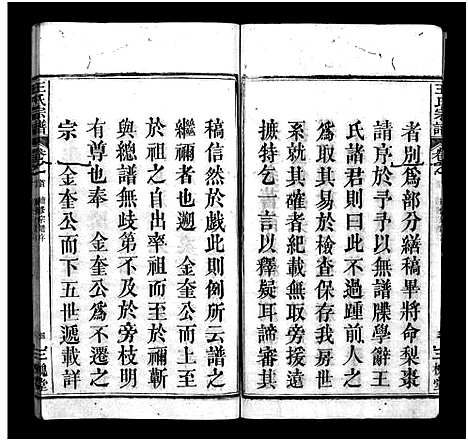 王氏宗譜
者別為部分繕稿畢將命梨棗
請序於予予以無譜牒學辭王
氏諸君則曰不過踵前人之
為取其易於檢查保存我房世
系就其確者紀載無取旁援遠
摭特乞數言以釋疑耳諦審其
稿信然於戲此則例所云譜之
繼禰者也遡 金奎公而上至
於祖之自出率祖而至於禰蘄
與總譜無歧第不及於旁枝明
有尊也奉 金奎公為不遷之
宗 金奎公而下五世遞載詳
王氏宗譜
卷之首
三槐堂